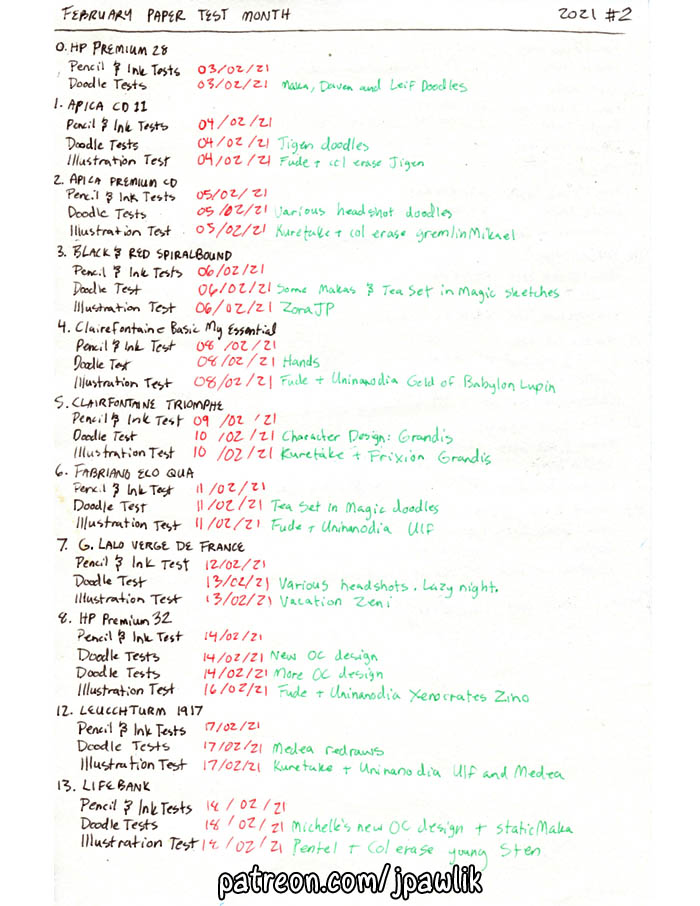 FEBRUARY PAPER TEST MONTH 2021 #2
0. HP PREMIUM 28
Pencil & Ink Tests 03/02/21
Doodle Tests 03/02/21 Maka, Daven and Leif Doodles
1. APICA CD 11
Pencil & Ink Tests 04/02/21
Doodle Tests 04/02/21 Jigen doodles
Illustration Test 04/02/21 Fude + col erase Jigen
2. APICA PREMIUM CD
Pencil & Ink Tests 05/02/21
Doodle Tests 05/02/21 Various headshot doodles
Illustration Test 05/02/21 Kuretake + col erase gremlin Mikael
3. BLACK & RED SPIRALBOUND
Pencil & Ink Tests 06/02/21
Doodle Test 06/02/21 Some Makas & Tea Set in Magic sketches
Illustration Test 06/02/21 Zora JP
4. Clairefontaine Basic My Essential
Pencil & Ink Test 08/02/21
Doodle Test 08/02/21 Hands
Illustration Test 08/02/21 Fude + Uninanodia Gold of Babylon Lupin
5. CLAIRFONTAINE TRIOMPHE
Pencil & Ink Test 09/02/21
Doodle Test 10/02/21 Character Design: Grandis
Illustration Test 10/02/21 Kuretake + Frixion Grandis
6. FABRIANO ECO QUA
Pencil & Ink Test 11/02/21
Doodle Test 11/02/21 Tea Set in Magic doodles
Illustration Test 11/02/21 Fude + Uninanodia Ulf
7. G. LALO VERGE DE FRANCE
Pencil & Ink Test 12/02/21
Doodle Test 13/02/21 Various headshots. Lazy night.
Illustration Test 13/02/21 Vacation Zeni
8. HP Premium 32
Pencil & Ink Test 14/02/21
Doodle Tests 14/02/21 New OC design
Doodle Tests 14/02/21 More OC design
Illustration Test 16/02/21 Fude + Uninanodia Xenocrates Zino
12. LEUCCHTURM 1917
Pencil & Ink Tests 17/02/21
Doodle Tests 17/02/21 Medea redraws
Illustration Test 17/02/21 Kuretake + Uninanodia Ulf and Medea
13. LIFEBANK
Pencil & Ink Tests 18/02/21
Doodle Tests 18/02/21 Michelle's new OC design + static Maka
Illustration Test 18/02/21 Pentel + Col erase young Sten
patreon.com/jpawlik